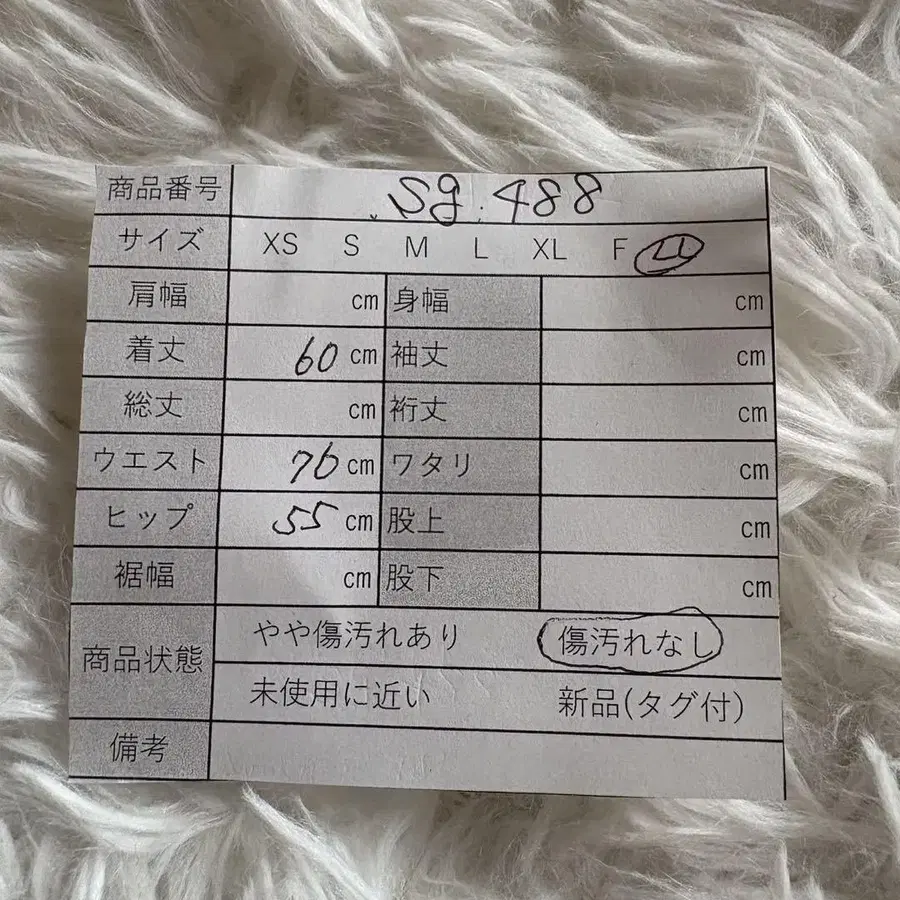 商品番号 sg.488
サイズ XS S M L XL F LL
肩幅 cm 身幅 cm
着丈 60 cm 袖丈 cm
総丈 cm 裄丈 cm
ウエスト 76 cm ワタリ cm
ヒップ 55 cm 股上 cm
裾幅 cm 股下 cm
商品状態 やや傷汚れあり 傷汚れなし
未使用に近い 新品(タグ付)
備考